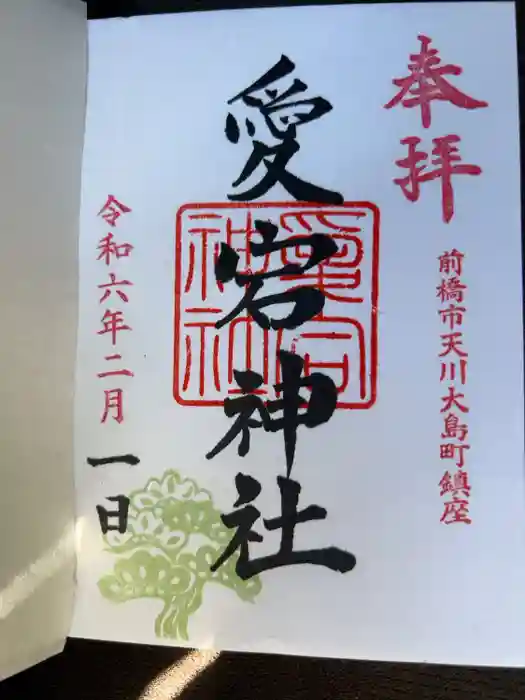 奉拝
前橋市天川大島町鎮座
愛宕神社
愛宕神社
令和六年二月
一日